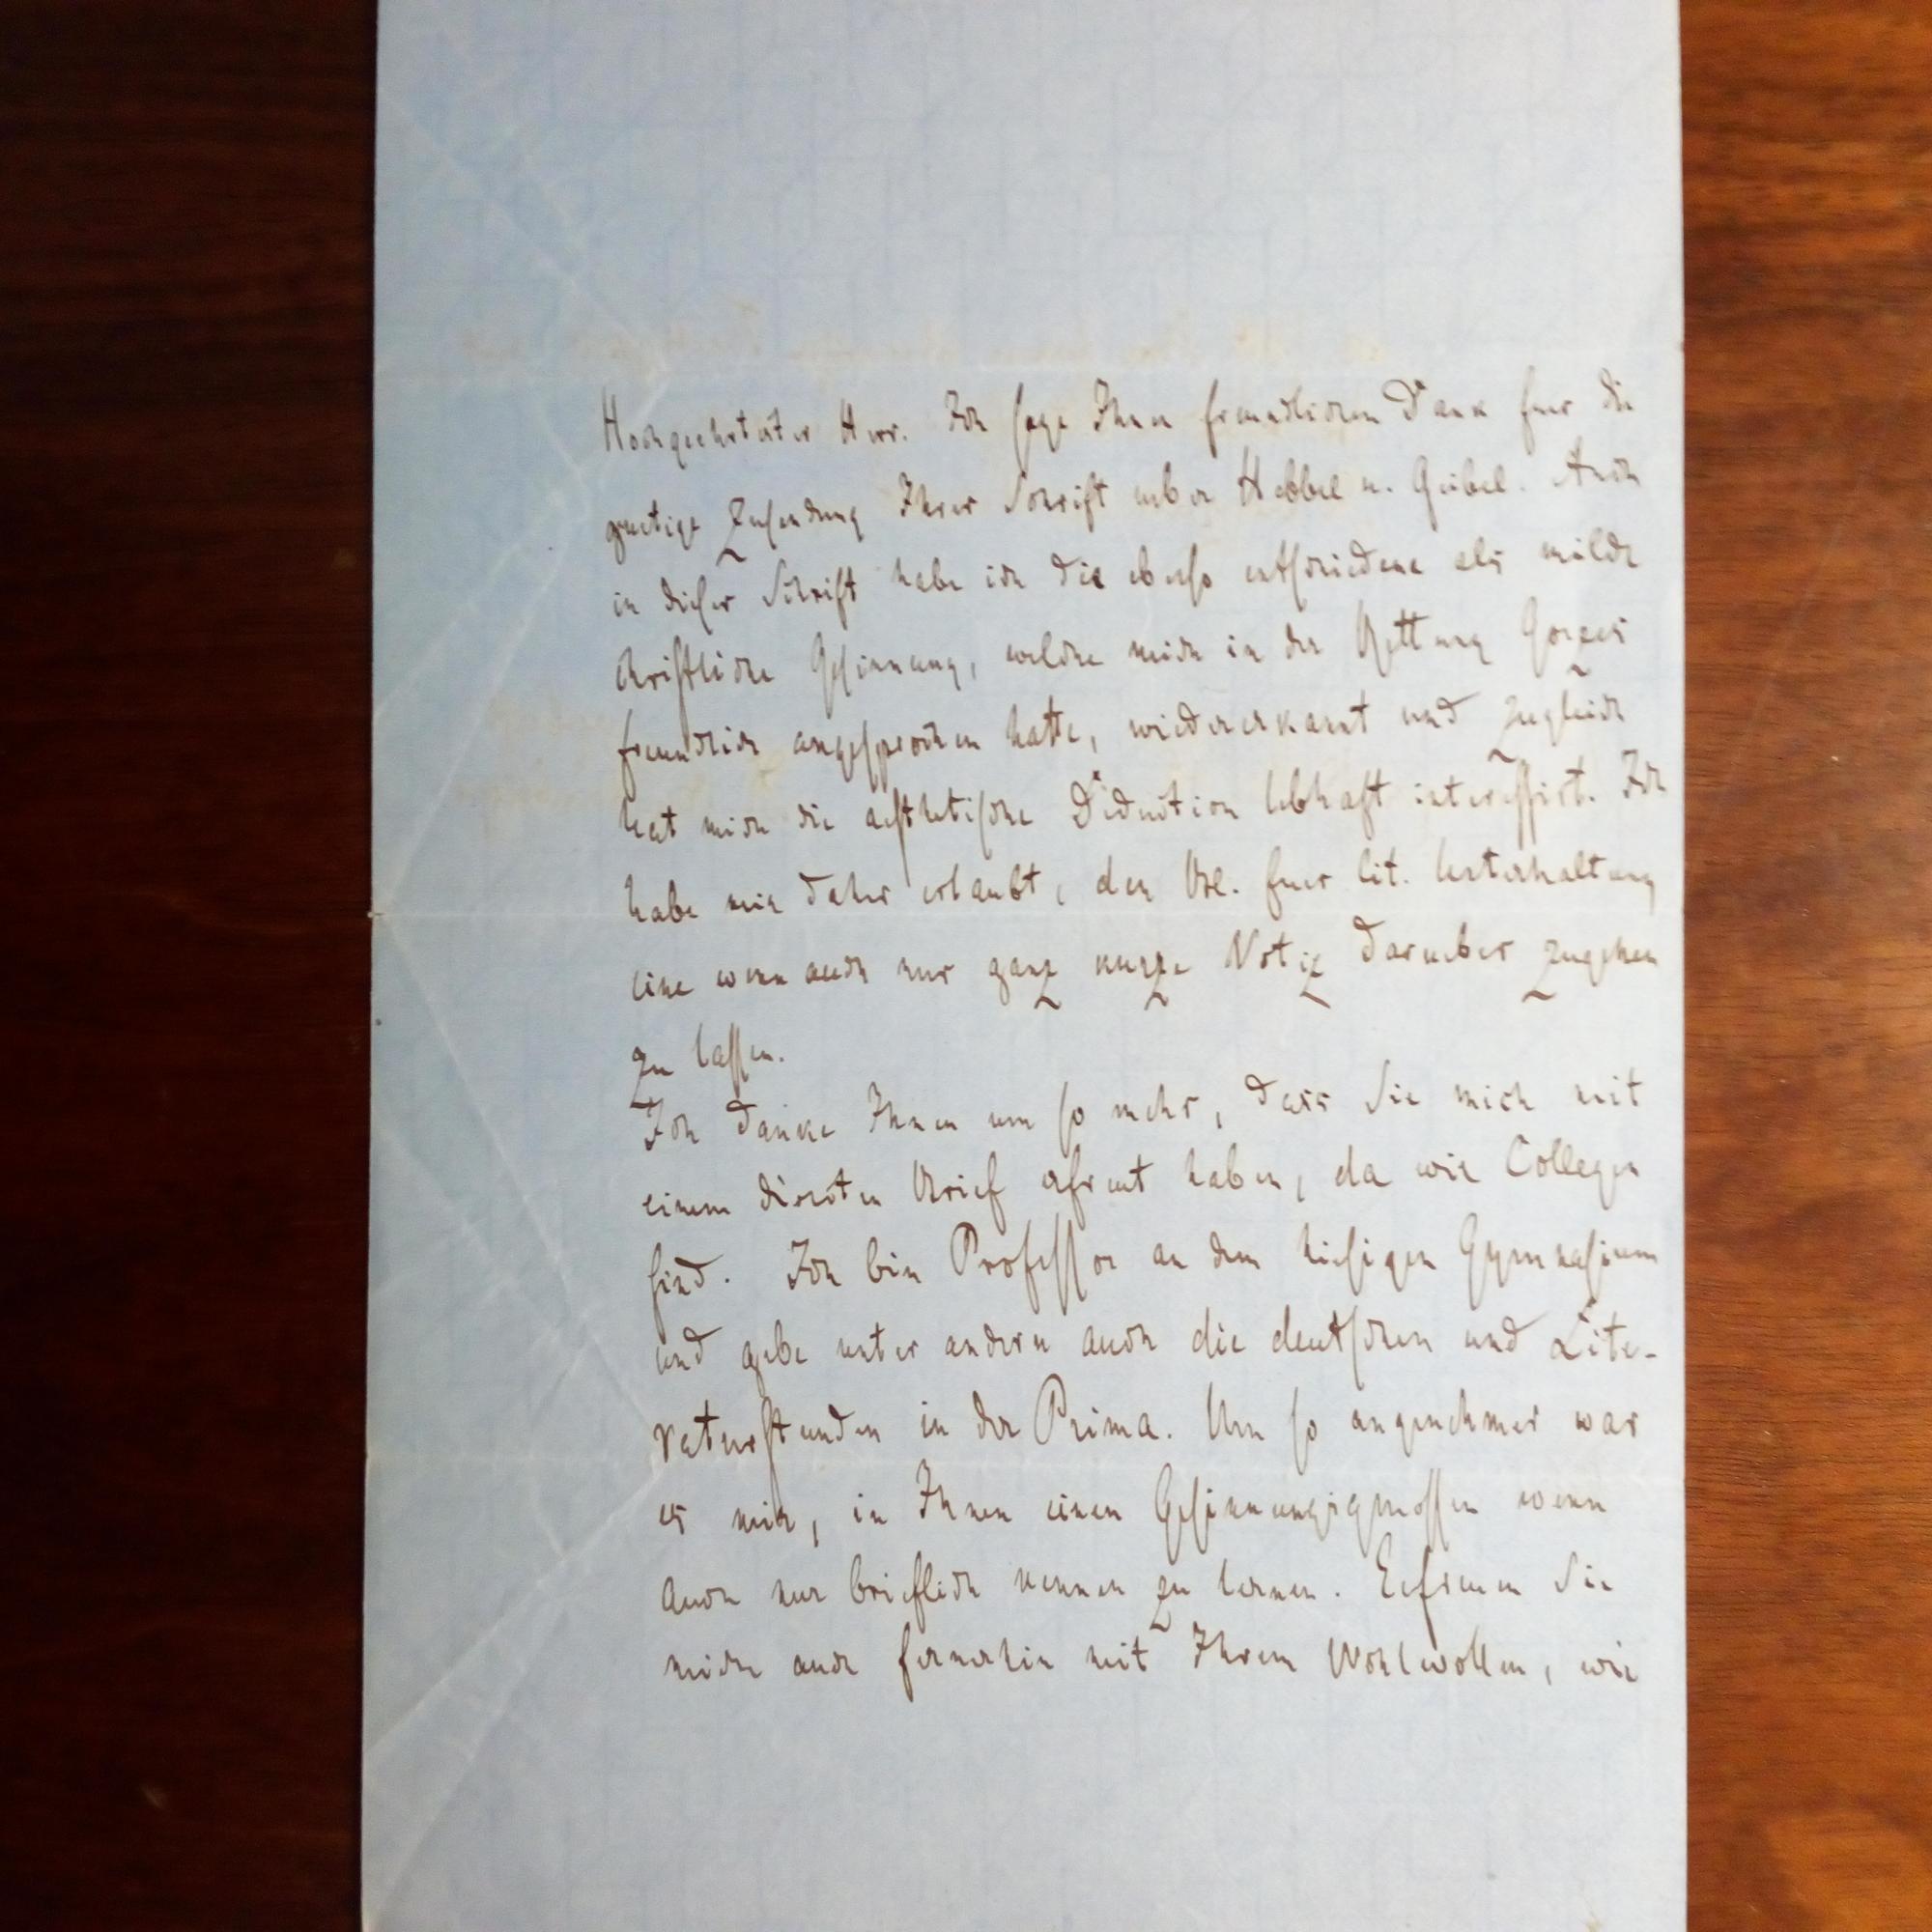 Hochgeehrtester Herr. Ich sage Ihnen freundlichen Dank fuer die
guetige Zusendung Ihrer Schrift ueber Hebbel u. Geibel. Auch
in dieser Schrift habe ich die ebenso entschiedene als milde
christliche Gesinnung, welche mich in der Rettung
freundlich angesprochen hatte, wiedererkannt und zugleich
hat mich die aesthetische Deduction lebhaft interessirt. Ich
habe mir daher erlaubt, den Bl. fuer lit. Unterhaltung
eine wenn auch nur ganz kurze Notiz darueber zugehen
zu lassen.
Ich danke Ihnen um so mehr, dass Sie mich mit
einem directen Brief erfreut haben, da wir Collegen
sind. Ich bin Professor an dem hiesigen Gymnasium
und gebe unter andern auch die deutschen und Lite-
raturstunden in der Prima. Um so angenehmer war
es mir, in Ihnen einen Gesinnungsgenossen wenn
auch nur brieflich kennen zu lernen. Erfreuen Sie
mich auch fernerhin mit Ihrem Wohlwollen, wie